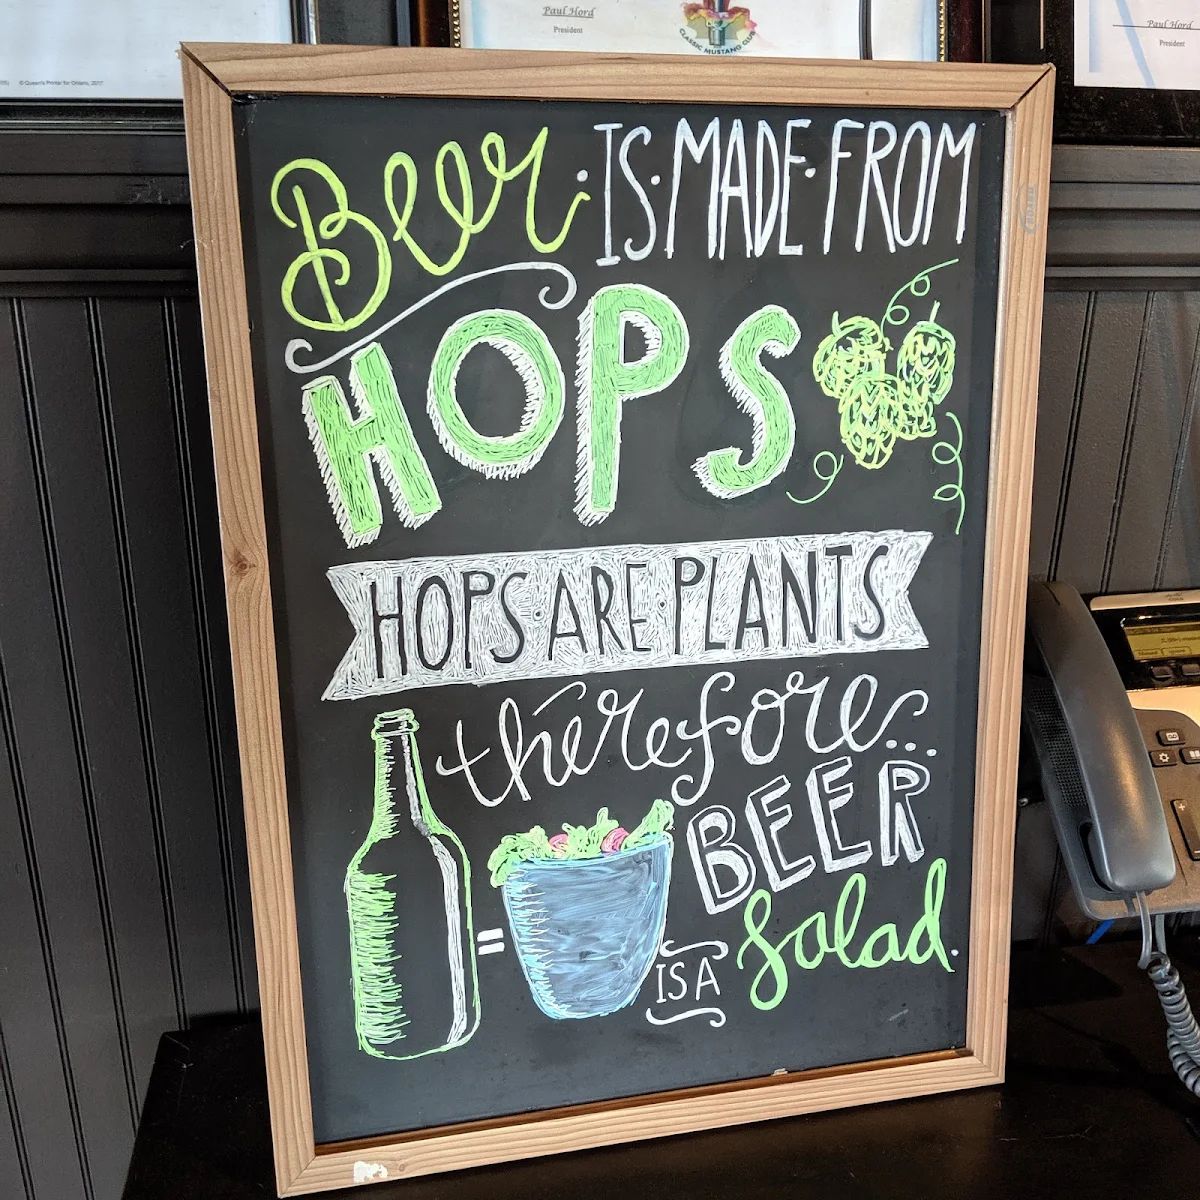 Paul Hord
President
CLASSIC MUSTANG CLUB
Paul Hord
President
© Queen's Printer for Ontario, 2017
Beer · IS · MADE · FROM
HOPS
HOPS · ARE · PLANTS
therefore...
BEER
=
IS A
Salad.